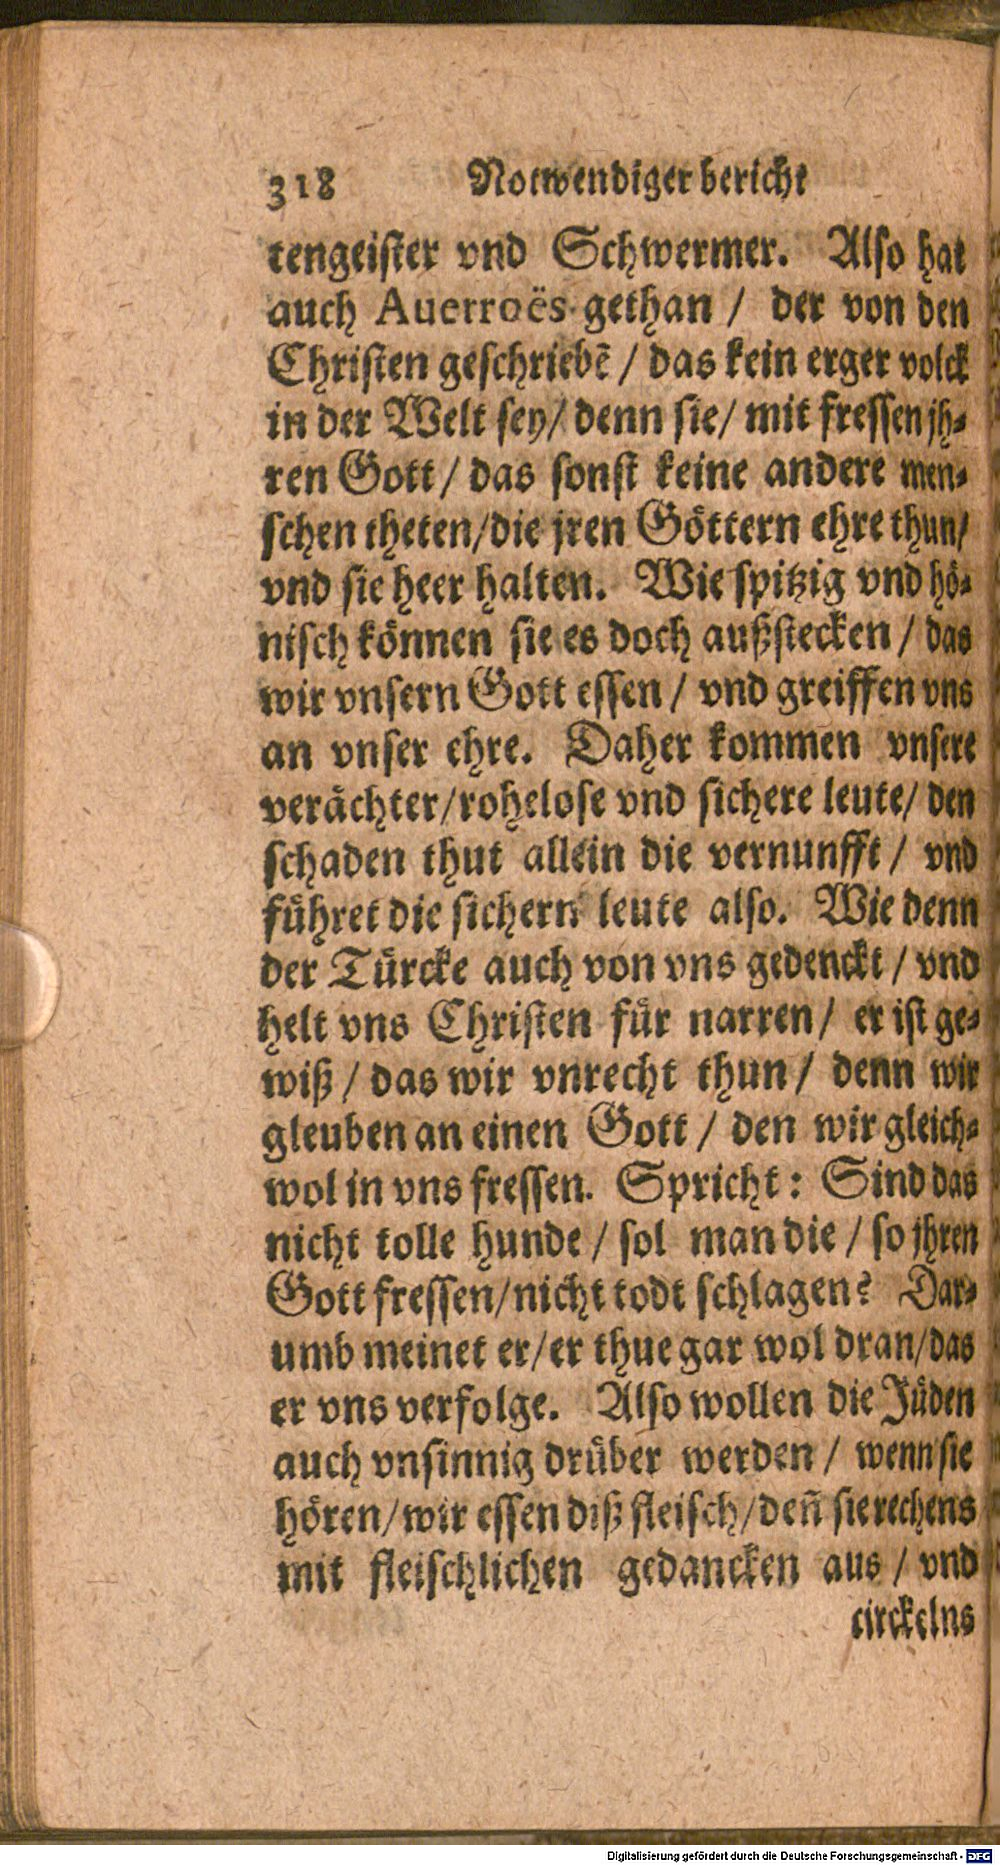 318 Notwendiger bericht
tengeister vnd Schwermer. Also hat
auch Auerroës gethan / der von den
Christen geschriebē / das kein erger volck
in der Welt sey / denn sie / mit fressen jh-
ren Gott / das sonst keine andere men-
schen theten / die jren Göttern ehre thun /
vnd sie heer halten. Wie spitzig vnd hö-
nisch können sie es doch außstecken / das
wir vnsern Gott essen / vnd greiffen vns
an vnser ehre. Daher kommen vnsere
verächter / rohelose vnd sichere leute / den
schaden thut allein die vernunfft / vnd
führet die sichern leute also. Wie denn
der Türcke auch von vns gedenckt / vnd
helt vns Christen für narren / er ist ge-
wiß / das wir vnrecht thun / denn wir
gleuben an einen Gott / den wir gleich-
wol in vns fressen. Spricht: Sind das
nicht tolle hunde / sol man die / so jhren
Gott fressen / nicht todt schlagen? Dar-
umb meinet er / er thue gar wol dran / das
er vns verfolge. Also wollen die Jüden
auch vnsinnig drüber werden / wenn sie
hören / wir essen diß fleisch / deñ sie rechens
mit fleischlichen gedancken aus / vnd
circkelns
Digitalisierung gefördert durch die Deutsche Forschungsgemeinschaft - DFG